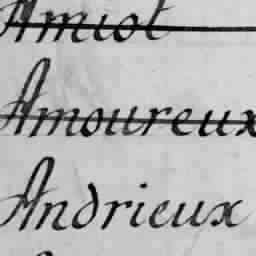 Amiot
Amoureux
Andrieux